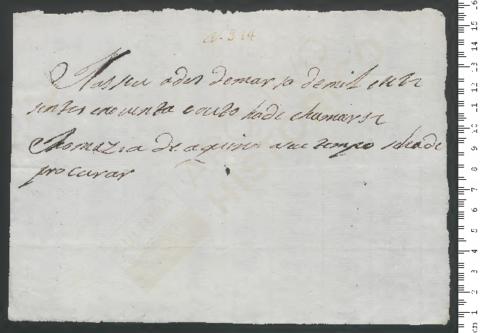 Nasseu ados demarso demil esete
sentos cincuenta e outo hade chamarse
Thomazia de aquino aseu tempo sehade
procurar